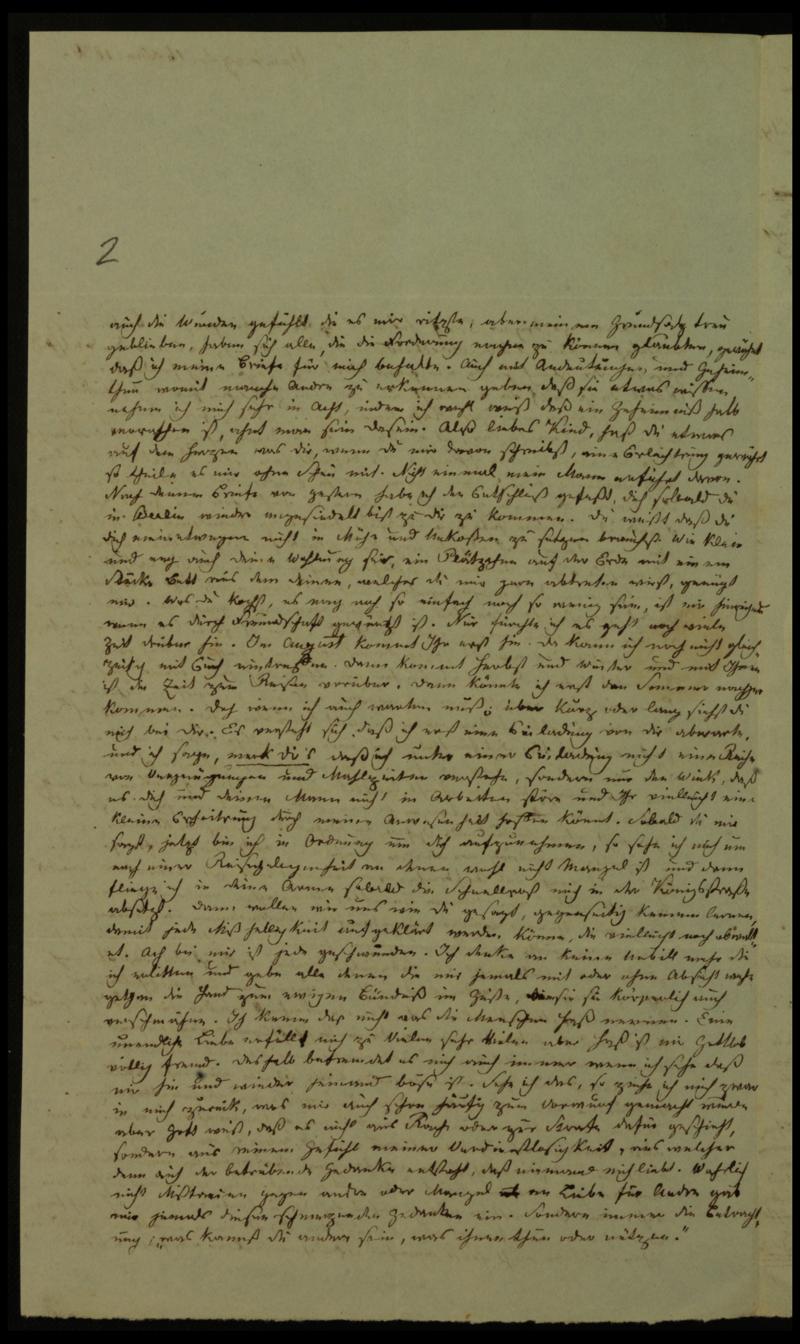 2
auch die Wunden gefühlt die es mir ritzte, aber meinem Grundsatz treu
geblieben, haben sich alle, die die Forderung machen zu können glaubten, gewöhnt
daß ich meine Briefe für mich behalte. Auch mit Andeutungen und Geheim-
thun womit manche Andre zu erkennen geben daß sie etwas wissen
nehme ich mich sehr in Acht, indem ich wohl weiß daß ein Geheimniß halb
verrathen ist, ahnt man sein Dasein. Also liebes Kind, hast du etwas
auf dem Herzen was dir, wenn du mir davon schreibst, eine Erleichtrung gewährt
so theile es mir ohne Scheu mit. Nicht einmal mein Mann erfährt davon.
Nach deinem Briefe von gestern habe ich den Entschluß gefaßt, dich sobald du
in Berlin wieder angesiedelt bist zu dir zu kommen. Du weißt daß du
dich meinetwegen nicht in Mühe und Unkosten zu setzen brauchst. Wie klein
und eng auch deine Wohnung sei, ein Plätzchen auf der Erde mit einem
Stücke Bett aus dem deinen, welches du mir gern abtreten wirst, genügt
mir. Was du kochst, es mag noch so einfach noch so wenig sein, ist mir hinreichend
wenn es durch Freundschaft gewürzt ist. Nur fürchte ich es geht noch viele
Zeit drüber hin. Im August kommt Ihr erst hin. Da kann ich noch nicht gleich
zeitig mit Euch eintreffen. Dann kommt Herbst und Winter und mit Ihnen
ist die Zeit zum Reisen vorüber. Dann könnte ich erst den Sommer nachher
kommen. Doch wenn ich auch warten muß, über kurz oder lang siehst du
mich bei dir. Es versteht sich, daß ich erst eine Einladung von dir abwarte,
und ich sage, merk dirs daß ich unter einer Einladung nicht eine Reihe
von Vergnügungen und Mahlzeiten verstehe, sondern nur den Wink, daß
es dich und deinen Mann nicht in Arbeiten störe und Ihr vielleicht eine
kleine Erheitrung durch meine Anwesenheit hoffen könnt. Sobald du mir
sagst, jetzt bin ich in Ordnung um dich aufzunehmen, so sehe ich mich um
nach einer Reisegelegenheit an denen wohl nicht Mangel ist und dann
fliege ich in deine Arme sobald die Schnellpost mich in der Königsstraße
absetzt. Dann wollen wir uns wie du gesagt, gegenseitig kennen lernen,
damit jede Mißhelligkeit aufgeklärt werden könne, die vielleicht noch obwalt-
et. Ach bei mir ist jede geschwunden. Ich denke an keine Unbill mehr die
ich erlitten und gebe alle denen die mir jemals mit oder ohne Absicht wehe
gethan die Hand zum ewigen Bündniß im Geiste, wenn sie sie körperlich auch
verschmähen. Ich kenne das nicht was die Menschen Haß nennen. Eine
unendliche Liebe erfüllt mich zu Vielen sehr Vielen aber Haß ist mir Gottlob
völlig fremd. Deshalb befremdet es mich auch immer wenn ich sehe daß
mir hin und wieder jemand böse ist. Sehe ich das, so ziehe ich mich zwar
in mich zurück, was mir auch schon häufig zum Vorwurf gemacht wurde
aber Gott weiß, daß es nicht aus Rache oder zur Strafe dafür geschieht,
sondern aus reinem Gefühl meiner Verdienstlosigkeit, aus welcher
denn auch der betrübende Gedanke entsteht, daß niemand mich liebt. Wahrlich
nicht Mistrauen gegen andre oder Mangel an Liebe für Andre gab
mir jemals diesen schmerzenden Gedanken ein. Sondern immer die Betracht-
ung, "was kannst du andern sein, was ihnen thun oder nützen."